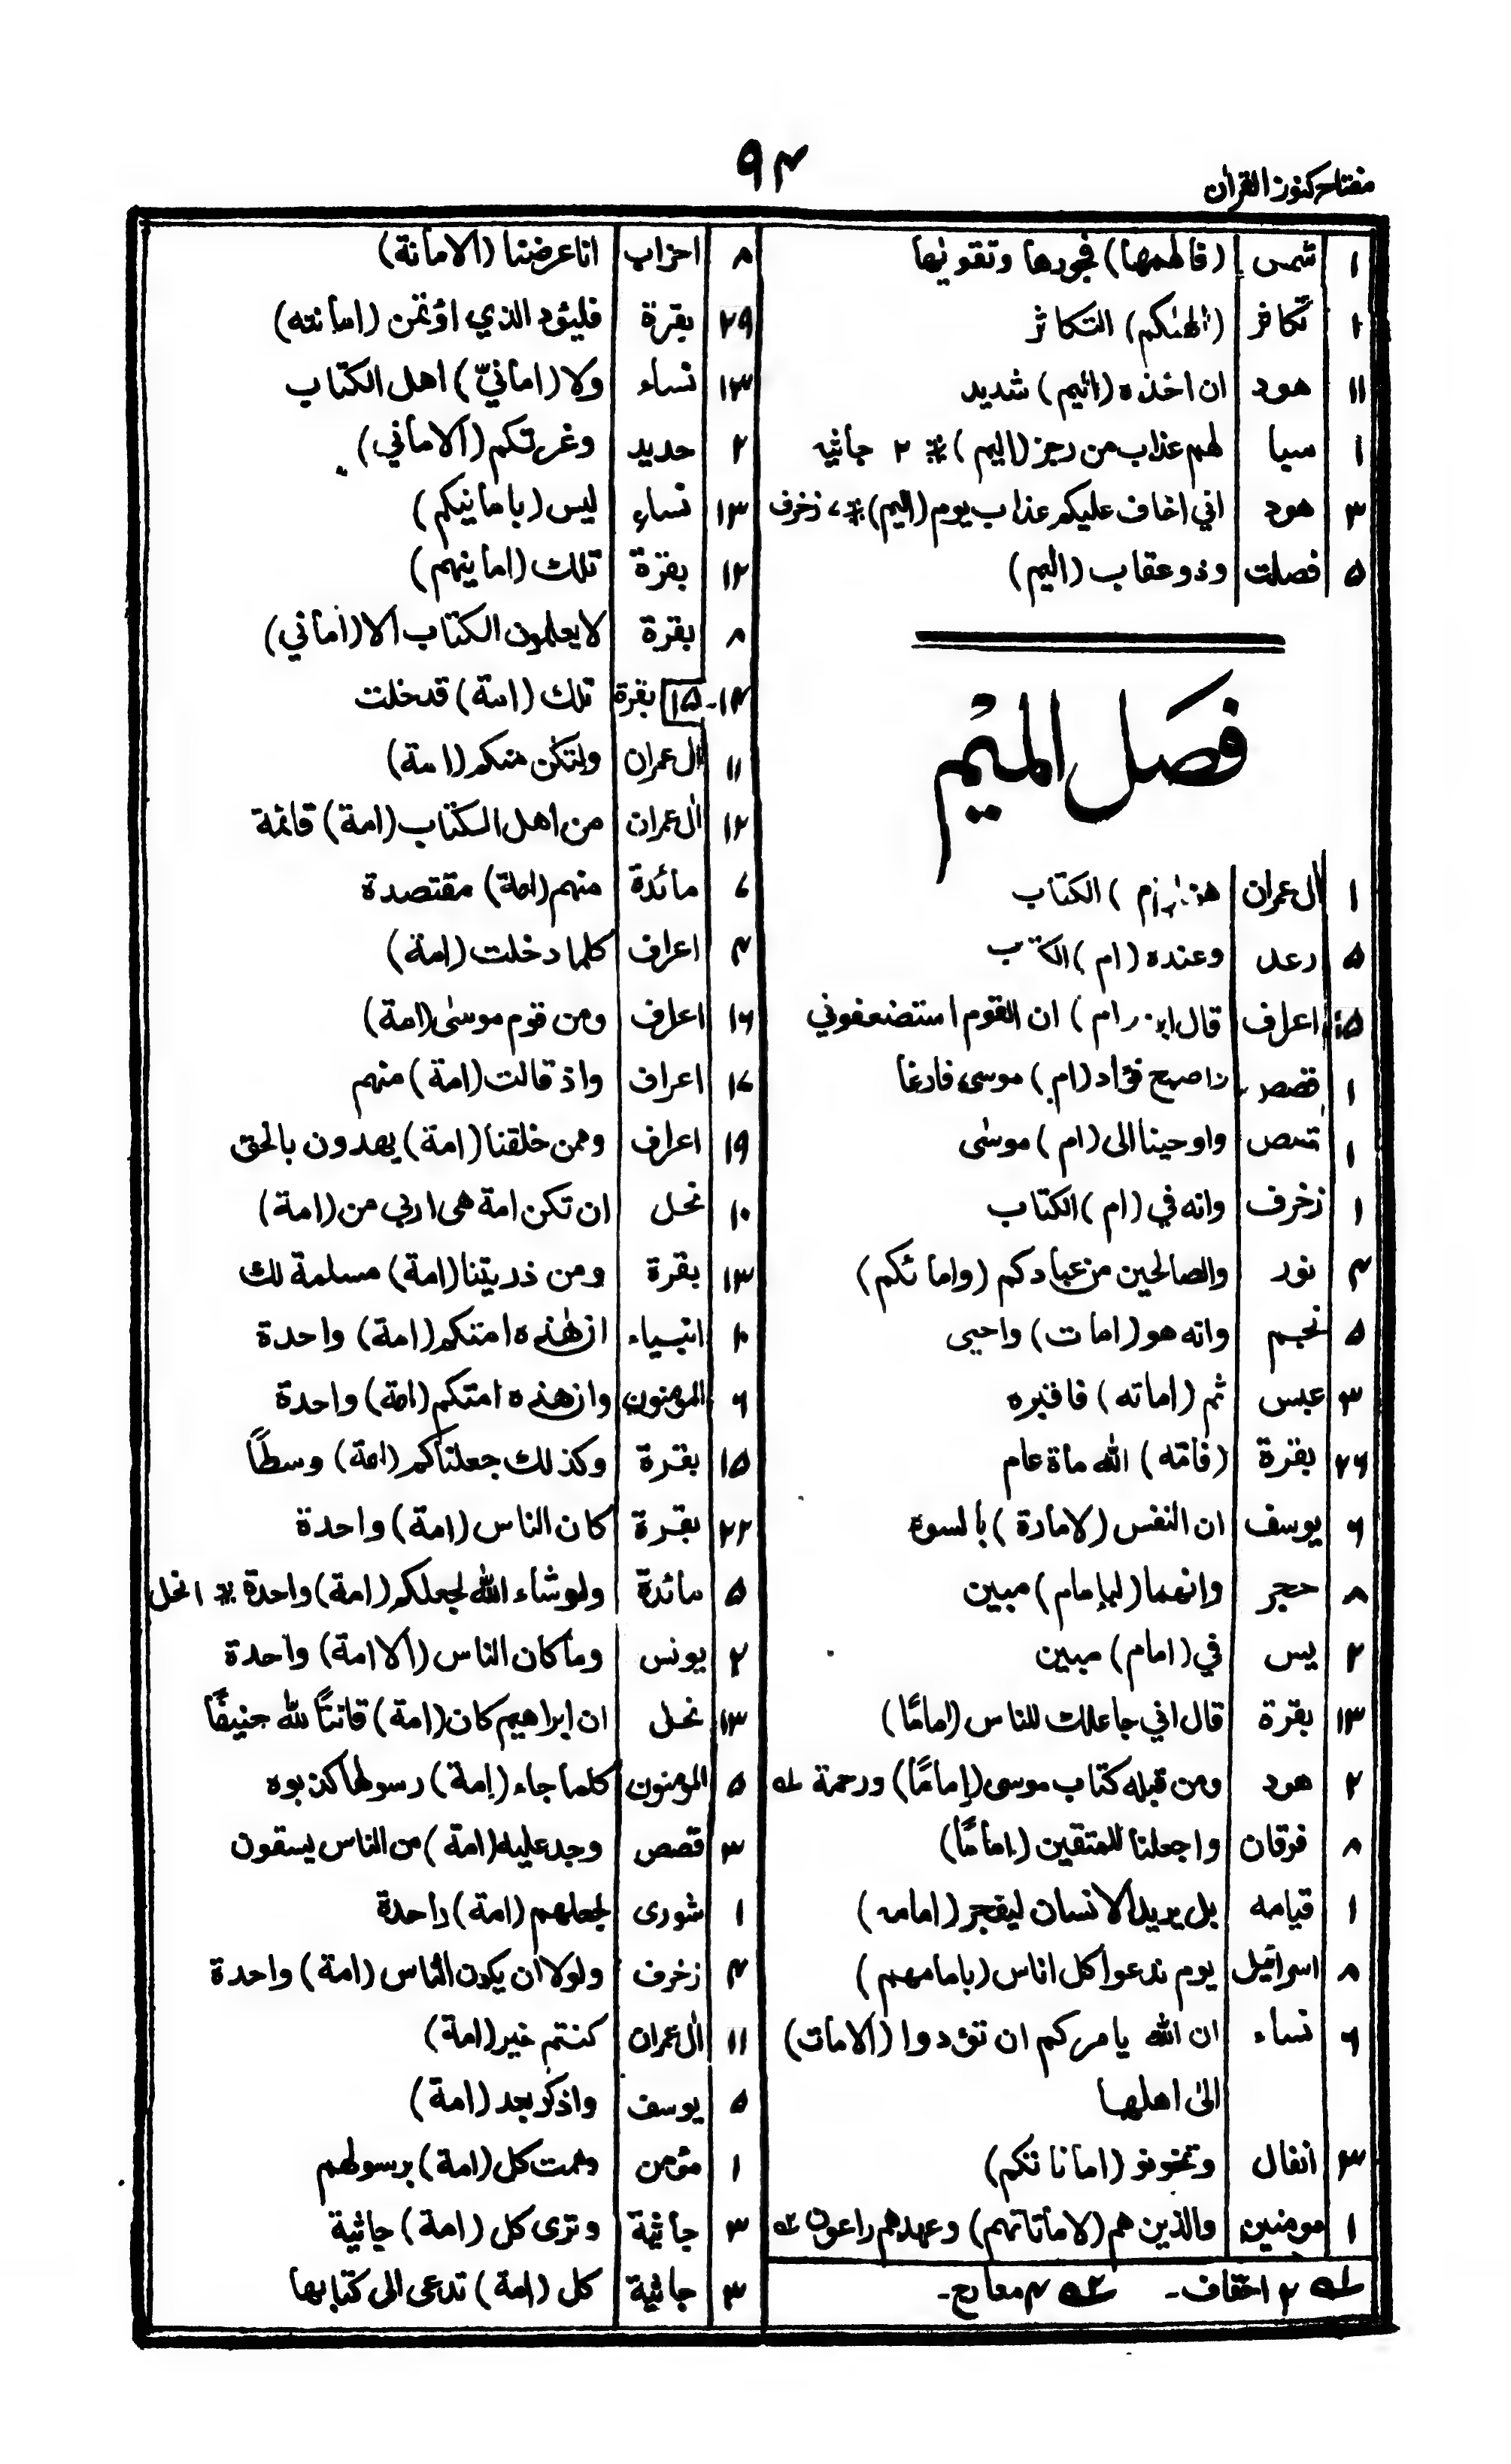 مفتاح كنوز القرآن
٩٤
١ شمس (فالهمها) فجورها وتقوىٰها
١ تكاثر (الهٰىكم) التكاثر
١١ هود ان اخذه (اليم) شديد
١ سبا لهم عذاب من رجز (اليم) * ٢ جاثيه
٣ هود اني اخاف عليكم عذاب يوم (اليم) * ٧ زخرف
٥ فصلت وذو عقاب (اليم)
فصل الميم
١ اٰل عمران (ام) الكتاب
٥ رعد وعنده (ام) الكتب
١٥ اعراف قال ابن (ام) ان القوم استضعفوني
١ قصص واصبح فؤاد (ام) موسىٰ فارغا
١ قصص واوحينا الى (ام) موسىٰ
١ زخرف وانه في (ام) الكتاب
٤ نور والصالحين من عبادكم (وامائكم)
٥ نجم وانه هو (امات) واحيى
٣ عبس ثم (اماته) فاقبره
٢٦ بقرة (فاته) الله ماة عام
٦ يوسف ان النفس (لامارة) بالسوء
٨ حجر وانهما (لبإمام) مبين
٢ يس في (امام) مبين
١٣ بقرة قال اني جاعلك للناس (امامًا)
٢ هود ومن قبله كتاب موسى (إمامًا) ورحمة ؎١
٨ فرقان واجعلنا للمتقين (امامًا)
١ قيامه بل يريد الانسان ليفجر (امامه)
٨ اسرائيل يوم ندعوا كل اناس (بامامهم)
٦ نساء ان الله يامركم ان تؤدوا (الامات)
الىٰ اهلها
٣ انفال وتخونو (اماناتكم)
١ مومنين والذين هم (لاماناتهم) وعهدهم راعون ؎٢
؎١ ٢ احقاف۔ ؎٢ ٢ معارج۔
٨ احزاب انا عرضنا (الامانة)
٢٩ بقرة فليئود الذي اؤتمن (امانته)
١٣ نساء ولا (امانيّ) اهل الكتاب
٢ حديد وغرتكم (الاماني)
١٣ نساء ليس (بامانيكم)
١٢ بقرة تلك (امانيهم)
٨ بقرة لا يعلمون الكتاب الا (اماني)
١٤-١٥ بقرة تلك (امة) قد خلت
١١ اٰل عمران ولتكن منكم (امة)
١٢ اٰل عمران من اهل الكتاب (امة) قائمة
٧ مائدة منهم (امة) مقتصدة
٤ اعراف كلما دخلت (امة)
١٦ اعراف ومن قوم موسىٰ (امة)
١٧ اعراف واذ قالت (امة) منهم
١٩ اعراف وممن خلقنا (امة) يهدون بالحق
١٠ نحل ان تكن امة هى اربى من (امة)
١٣ بقرة ومن ذريتنا (امة) مسلمة لك
١٠ انبياء ان هٰذه امتكم (امة) واحدة
٦ المومنون وان هذه امتكم (امة) واحدة
١٥ بقرة وكذلك جعلناكم (امة) وسطًا
٢٢ بقرة كان الناس (امة) واحدة
٥ مائدة ولو شاء الله لجعلكم (امة) واحدة * ١ نحل
٢ يونس وما كان الناس (الا امة) واحدة
١٣ نحل ان ابراهيم كان (امة) قانتًا لله حنيفًا
٥ المومنون كلما جاء (امة) رسولها كذبوه
٣ قصص وجد عليه (امة) من الناس يسقون
١ شورى لجعلهم (امة) واحدة
٤ زخرف ولولا ان يكون الناس (امة) واحدة
١١ اٰل عمران كنتم خير (امة)
٥ يوسف واذكر بعد (امة)
١ مؤمن وهمت كل (امة) برسولهم
٣ جاثية وترى كل (امة) جاثية
٣ جاثية كل (امة) تدعى الى كتابها